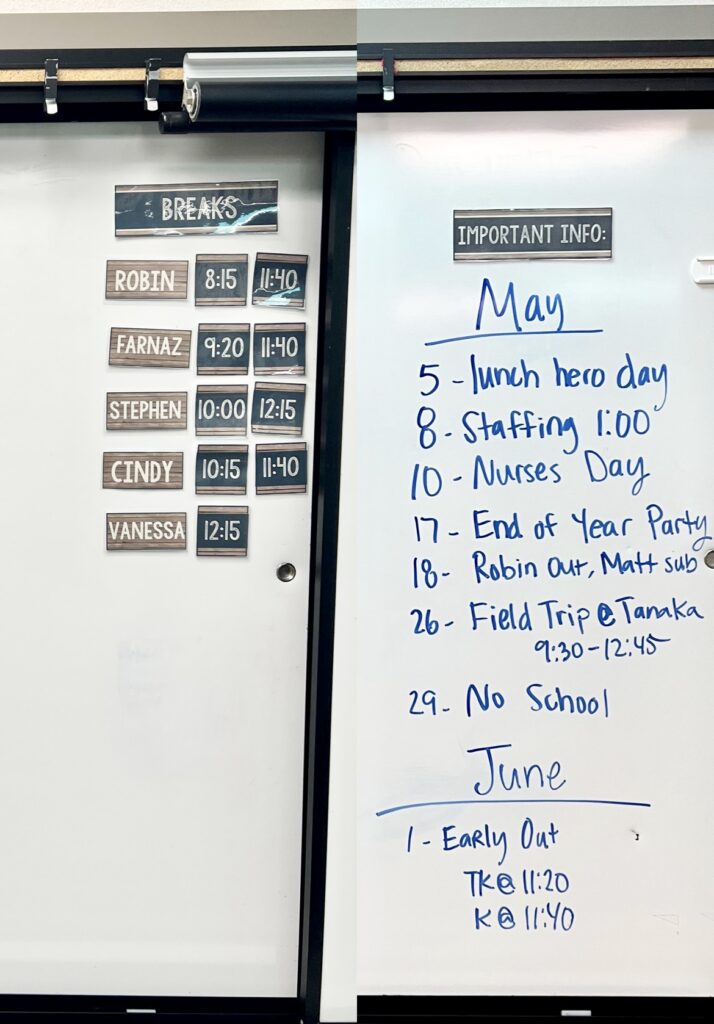 BREAKS
ROBIN 8:15 11:40
FARNAZ 9:20 11:40
STEPHEN 10:00 12:15
CINDY 10:15 11:40
VANESSA 12:15
IMPORTANT INFO:
May
5 - lunch hero day
8 - Staffing 1:00
10 - Nurses Day
17 - End of Year Party
18 - Robin Out, Matt sub
26 - Field Trip @ Tanaka
9:30 - 12:45
29 - No School
June
1 - Early Out
TK @ 11:20
K @ 11:40